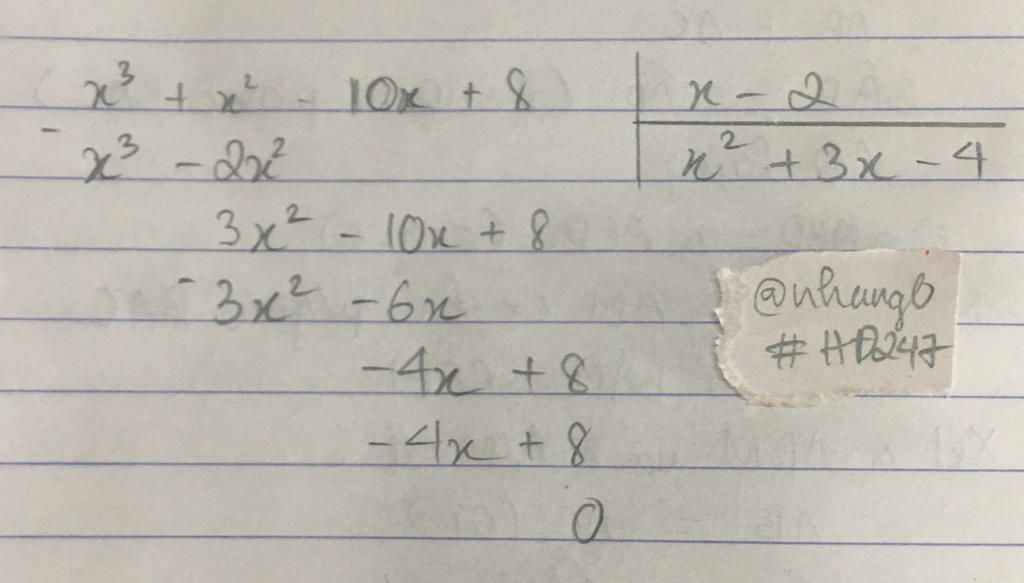 x³ + x² - 10x + 8 | x - 2
- x³ - 2x² | x² + 3x - 4
3x² - 10x + 8
- 3x² - 6x
-4x + 8
-4x + 8
0
@nhungb
#HD247